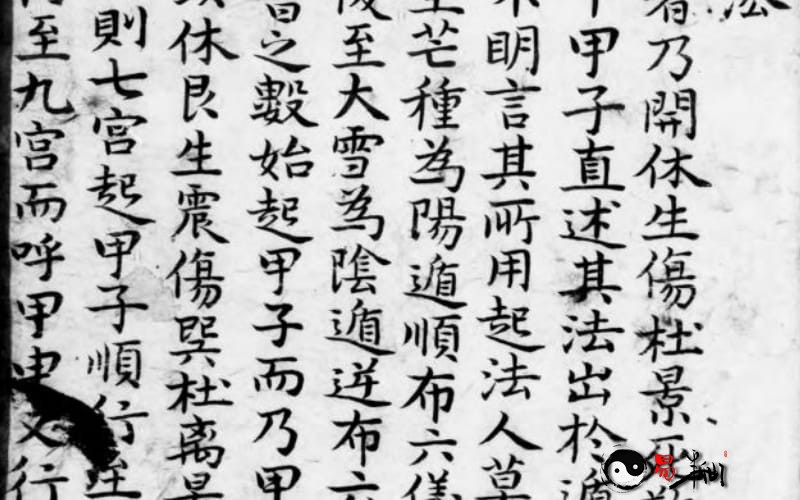 法
者乃開休生傷杜景
甲子直述其法出於遁
不明言其所用起法人莫
至芒種為陽遁順布六儀
至大雪為陰遁逆布六
之數始起甲子而乃甲
休艮生震傷巽杜离景
則七宫起甲子順行至
至九宫而呼甲申又行
易